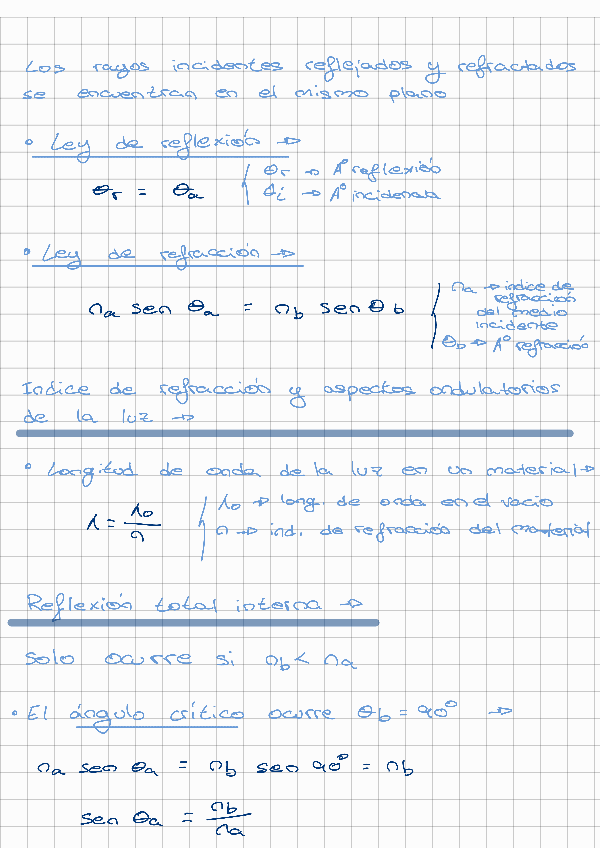 Los rayos incidentes reflejados y refractados
se encuentran en el mismo plano
• Ley de reflexión →
θr = θa
θr → A° reflexión
θi → A° incidencia
• Ley de refracción →
na sen θa = nb sen θb
na → indice de
refracción
del medio
incidente
θb → A° refracción
Indice de refracción y aspectos ondulatorios
de la luz →
• Longitud de onda de la luz en un material →
λ = λo/n
λo → long. de onda en el vacio
n → ind. de refracción del material
Reflexión total interna →
Solo ocurre si nb < na
• El ángulo crítico ocurre θb = 90° →
na sen θa = nb sen 90° = nb
sen θa = nb/na